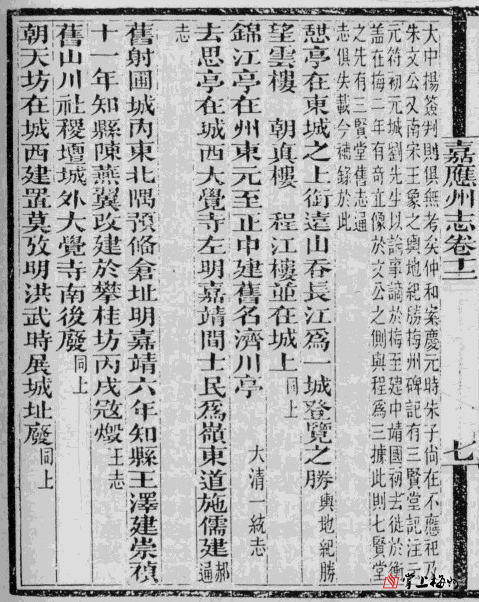 大中楊簽判則俱無考矣仲和案慶元時朱子尙在不應祀乃
朱文公又南宋王象之輿地紀勝梅州碑記有三賢堂記注云
元符初元城劉先生以論事謫於梅至建中靖國初去徙於衡
蓋在梅二年有奇立像於文公之側與程為三據此則七賢堂
之先有三賢堂舊志通
志俱失載今補錄於此
憩亭在東城之上銜遠山吞長江爲一城登覽之勝輿地紀勝
望雲樓 朝眞樓 程江樓並在城上同上
錦江亭在州東元至正中建舊名濟川亭 大清一統志
去思亭在城西大覺寺左明嘉靖間士民爲嶺東道施儒建郝通
志
舊射圃城丙東北隅預俻倉址明嘉靖六年知縣王澤建崇禎
十一年知縣陳燕翼改建於攀桂坊丙戌寇燬王志
舊山川社稷壇城外大覺寺南後廢同上
朝天坊在城西建置莫攷明洪武時展城址廢同上
嘉應州志卷十二
七
掌上梅州